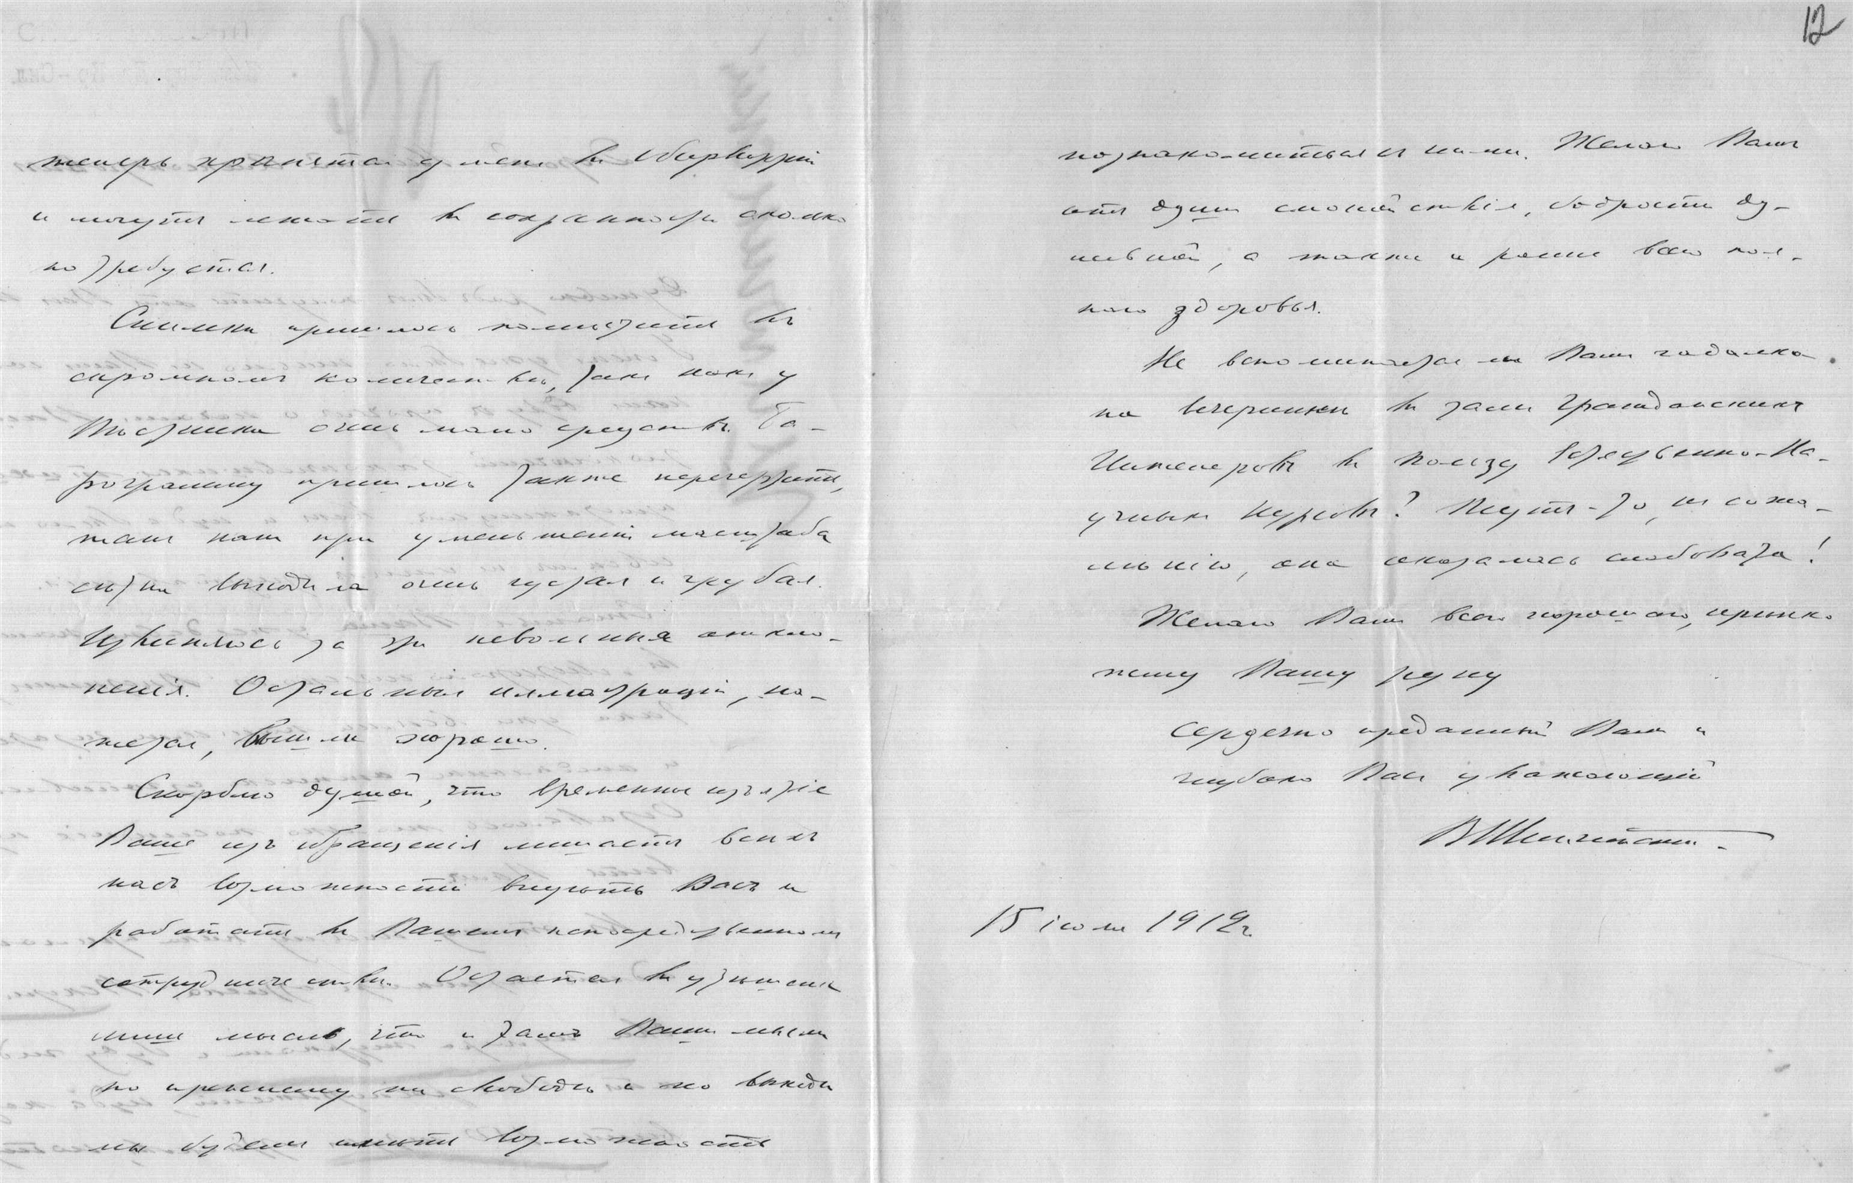 теперь хранятся у меня въ
и могутъ лежать въ сохранности сколько
потребуется.
Снимки пришлось помѣстить въ
скромномъ количествѣ, такъ какъ у
Вѣстника очень мало средствъ. Ба-
рограмму пришлось также перечертить,
такъ какъ при уменьшеніи масштаба
сѣтка выходила очень густая и грубая.
Извиняюсь за эти невольныя откло-
ненія. Остальныя иллюстраціи, ка-
жется, вышли хорошо.
Скорблю душой, что временное изъятіе
Ваше изъ обращенія лишаетъ всѣхъ
насъ возможности видѣть Васъ и
работать въ Вашемъ непосредственномъ
сотрудничествѣ. Остается въ утѣшеніе
лишь мысль, что и тамъ Ваши мысли
по прежнему на свободѣ и по выходѣ
мы будемъ имѣть возможность
12
познакомиться съ ними. Желаю Вамъ
отъ души спокойствія, бодрости ду-
шевной, а также и ранѣе всего пол-
наго здоровья.
Не вспоминается ли Вамъ гадалка
на вечеринкѣ въ залѣ Гражданскихъ
Инженеровъ въ пользу Естественно-На-
учныхъ Курсовъ? Шутъ-то, къ сожа-
лѣнію, она оказалась слабовата!
Желаю Вамъ всего хорошаго, крѣпко
жму Вашу руку
Сердечно преданный Вамъ и
глубоко Васъ уважающій
15 іюля 1912 г.